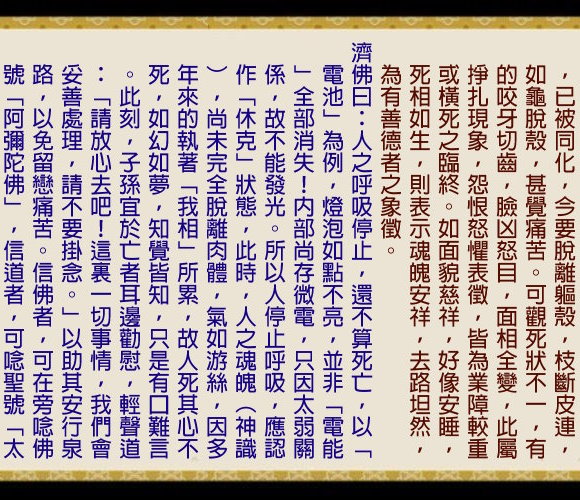 ，已被同化，今要脫離軀殼，枝斷皮連，
如龜脫殼，甚覺痛苦。可觀死狀不一，有
的咬牙切齒，臉凶怒目，面相全變，此屬
掙扎現象，怨恨怒懼表徵，皆為業障較重
或橫死之臨終。如面貌慈祥，好像安睡，
死相如生，則表示魂魄安祥，去路坦然，
為有善德者之象徵。
濟佛曰：人之呼吸停止，還不算死亡，以「
電池」為例，燈泡如點不亮，並非「電能
」全部消失！內部尚存微電，只因太弱關
係，故不能發光。所以人停止呼吸，應認
作「休克」狀態，此時，人之魂魄（神識
），尚未完全脫離肉體，氣如游絲，因多
年來的執著「我相」所累，故人死其心不
死，如幻如夢，知覺皆知，只是有口難言
。此刻，子孫宜於亡者耳邊勸慰，輕聲道
：「請放心去吧！這裏一切事情，我們會
妥善處理，請不要掛念。」以助其安行泉
路，以免留戀痛苦。信佛者，可在旁唸佛
號「阿彌陀佛」，信道者，可唸聖號「太